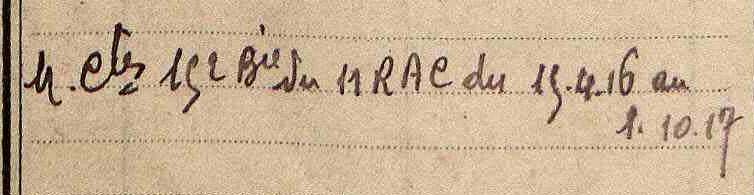 N. Ctés 152 Bie du 11 RAC du 15.4.16 au
1.10.17